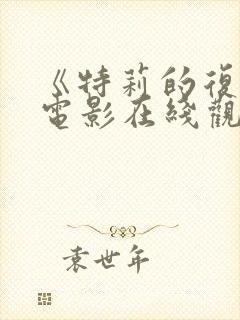 《特莉的復
電影在綫觀
袁世年